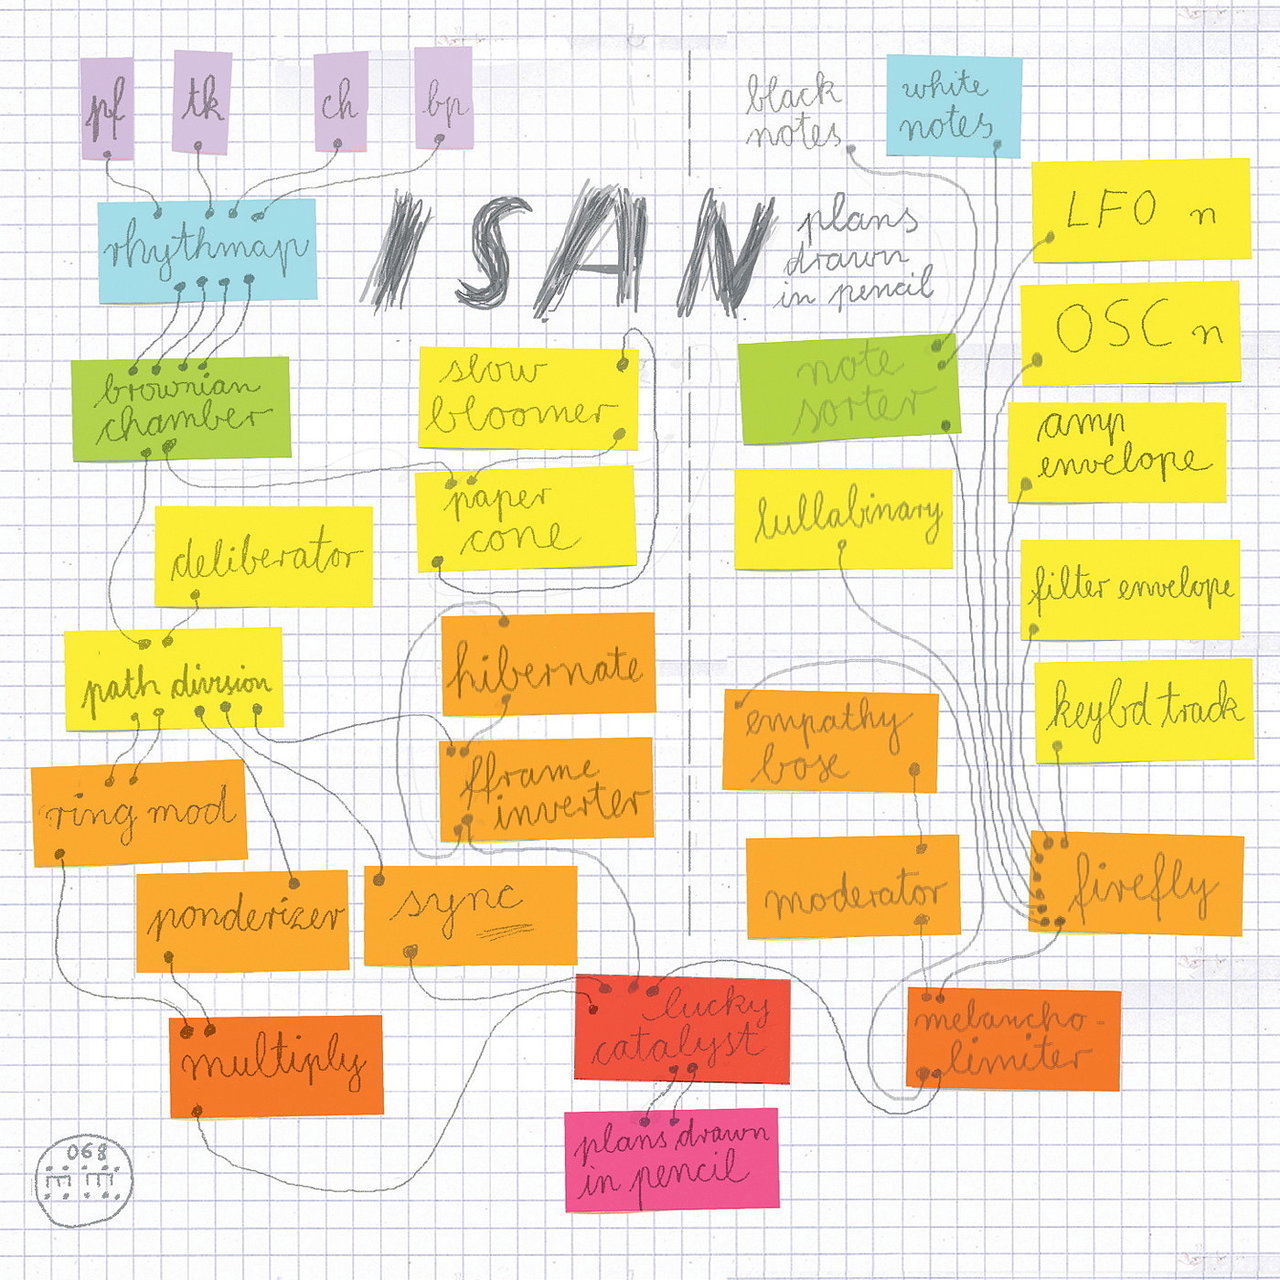 pf
tk
ch
bp
black
notes
white
notes
rhythmap
ISAN
plans
drawn
in pencil
LFO n
OSC n
brownian
chamber
slow
bloomer
note
sorter
amp
envelope
paper
cone
lullabinary
deliberator
filter envelope
path division
hibernate
empathy
bose
keybd track
fframe
inverter
ring mod
moderator
firefly
ponderizer
sync
lucky
catalyst
melancho-
limiter
multiply
plans drawn
in pencil
068